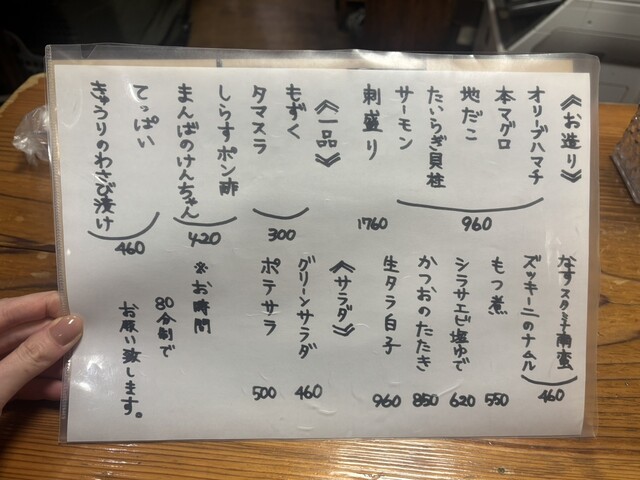 《お造り》
オリーブハマチ
本マグロ
地だこ
たいらぎ貝柱
サーモン
960
刺盛り
1760
《一品》
もずく
タマスラ
300
しらすポン酢
まんばのけんちゃん
420
てっぱい
きゅうりのわさび漬け
460
なすスタミナ南蛮
ズッキーニのナムル
460
もつ煮
550
シラサエビ塩ゆで
620
かつおのたたき
850
生タラ白子
960
《サラダ》
グリーンサラダ
460
ポテサラ
500
※お時間
80分制で
お願い致します。